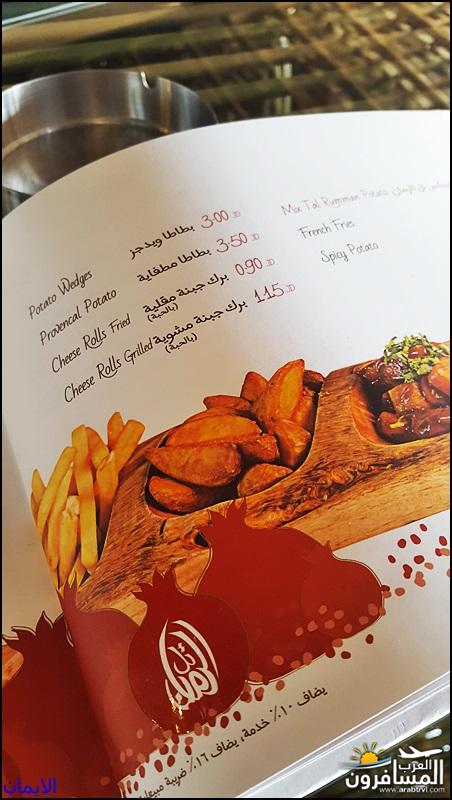 Potato Wedges بطاطا ويدجز 3.00 JD
Provencal Potato بطاطا مطفاية 3.50 JD
Cheese Rolls Fried برك جبنة مقلية 0.90 JD
(بالحبة)
Cheese Rolls Grilled برك جبنة مشوية 1.15 JD
(بالحبة)
Mix Tal Rumman Potato
French Fries
Spicy Potato
تل الرمان
يضاف ١٠٪ خدمة، يضاف ١٦٪ ضريبة مبيعات
الايمان
العرب
المسافرون
www.arabtrvl.com